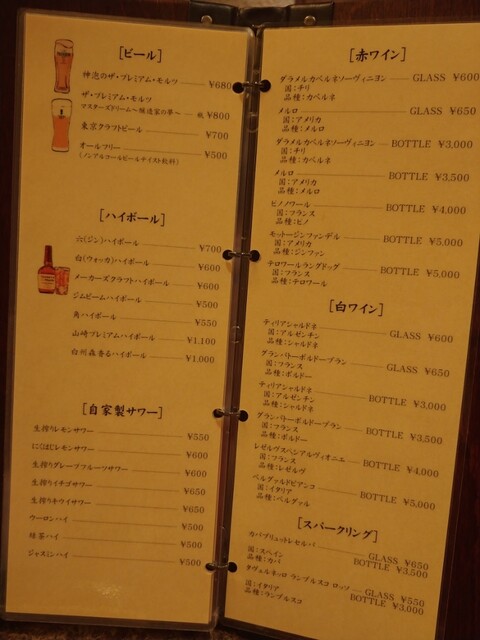 [ビール]
神泡のザ・プレミアム・モルツ ¥680
ザ・プレミアム・モルツ
マスターズドリーム〜醸造家の夢〜 瓶 ¥800
東京クラフトビール ¥700
オールフリー ¥500
(ノンアルコールビールテイスト飲料)
[ハイボール]
六(ジン)ハイボール ¥700
白(ウォッカ)ハイボール ¥600
メーカーズクラフトハイボール ¥600
ジムビームハイボール ¥500
角ハイボール ¥550
山崎プレミアムハイボール ¥1,100
白州森香るハイボール ¥1,000
[自家製サワー]
生搾りレモンサワー ¥550
にじはじレモンサワー ¥600
生搾りグレープフルーツサワー ¥600
生搾りイチゴサワー ¥650
生搾りキウイサワー ¥650
ウーロンハイ ¥500
緑茶ハイ ¥500
ジャスミンハイ ¥500
[赤ワイン]
ダラメルカベルネソーヴィニヨン GLASS ¥600
国:チリ
品種:カベルネ
メルロ GLASS ¥650
国:アメリカ
品種:メルロ
ダラメルカベルネソーヴィニヨン BOTTLE ¥3,000
国:チリ
品種:カベルネ
メルロ BOTTLE ¥3,500
国:アメリカ
品種:メルロ
ピノノワール BOTTLE ¥4,000
国:フランス
品種:ピノ
モットージンファンデル BOTTLE ¥5,000
国:アメリカ
品種:ジンファン
テロワールラングドッグ BOTTLE ¥5,000
国:フランス
品種:テロワール
[白ワイン]
ティリアシャルドネ GLASS ¥600
国:アルゼンチン
品種:シャルドネ
グランバトーボルドーブラン GLASS ¥650
国:フランス
品種:ボルドー
ティリアシャルドネ BOTTLE ¥3,000
国:アルゼンチン
品種:シャルドネ
グランバトーボルドーブラン BOTTLE ¥3,500
国:フランス
品種:ボルドー
レゼルヴスペシアルヴィオニエ BOTTLE ¥4,000
国:フランス
品種:レゼルヴ
ベルグァルドビアンコ BOTTLE ¥5,000
国:イタリア
品種:ベルグァル
[スパークリング]
カバブリュットレセルバ GLASS ¥650
国:スペイン BOTTLE ¥3,500
品種:カバ
タヴェルネッロ ランブルスコ ロッソ GLASS ¥550
国:イタリア BOTTLE ¥3,000
品種:ランブルスコ